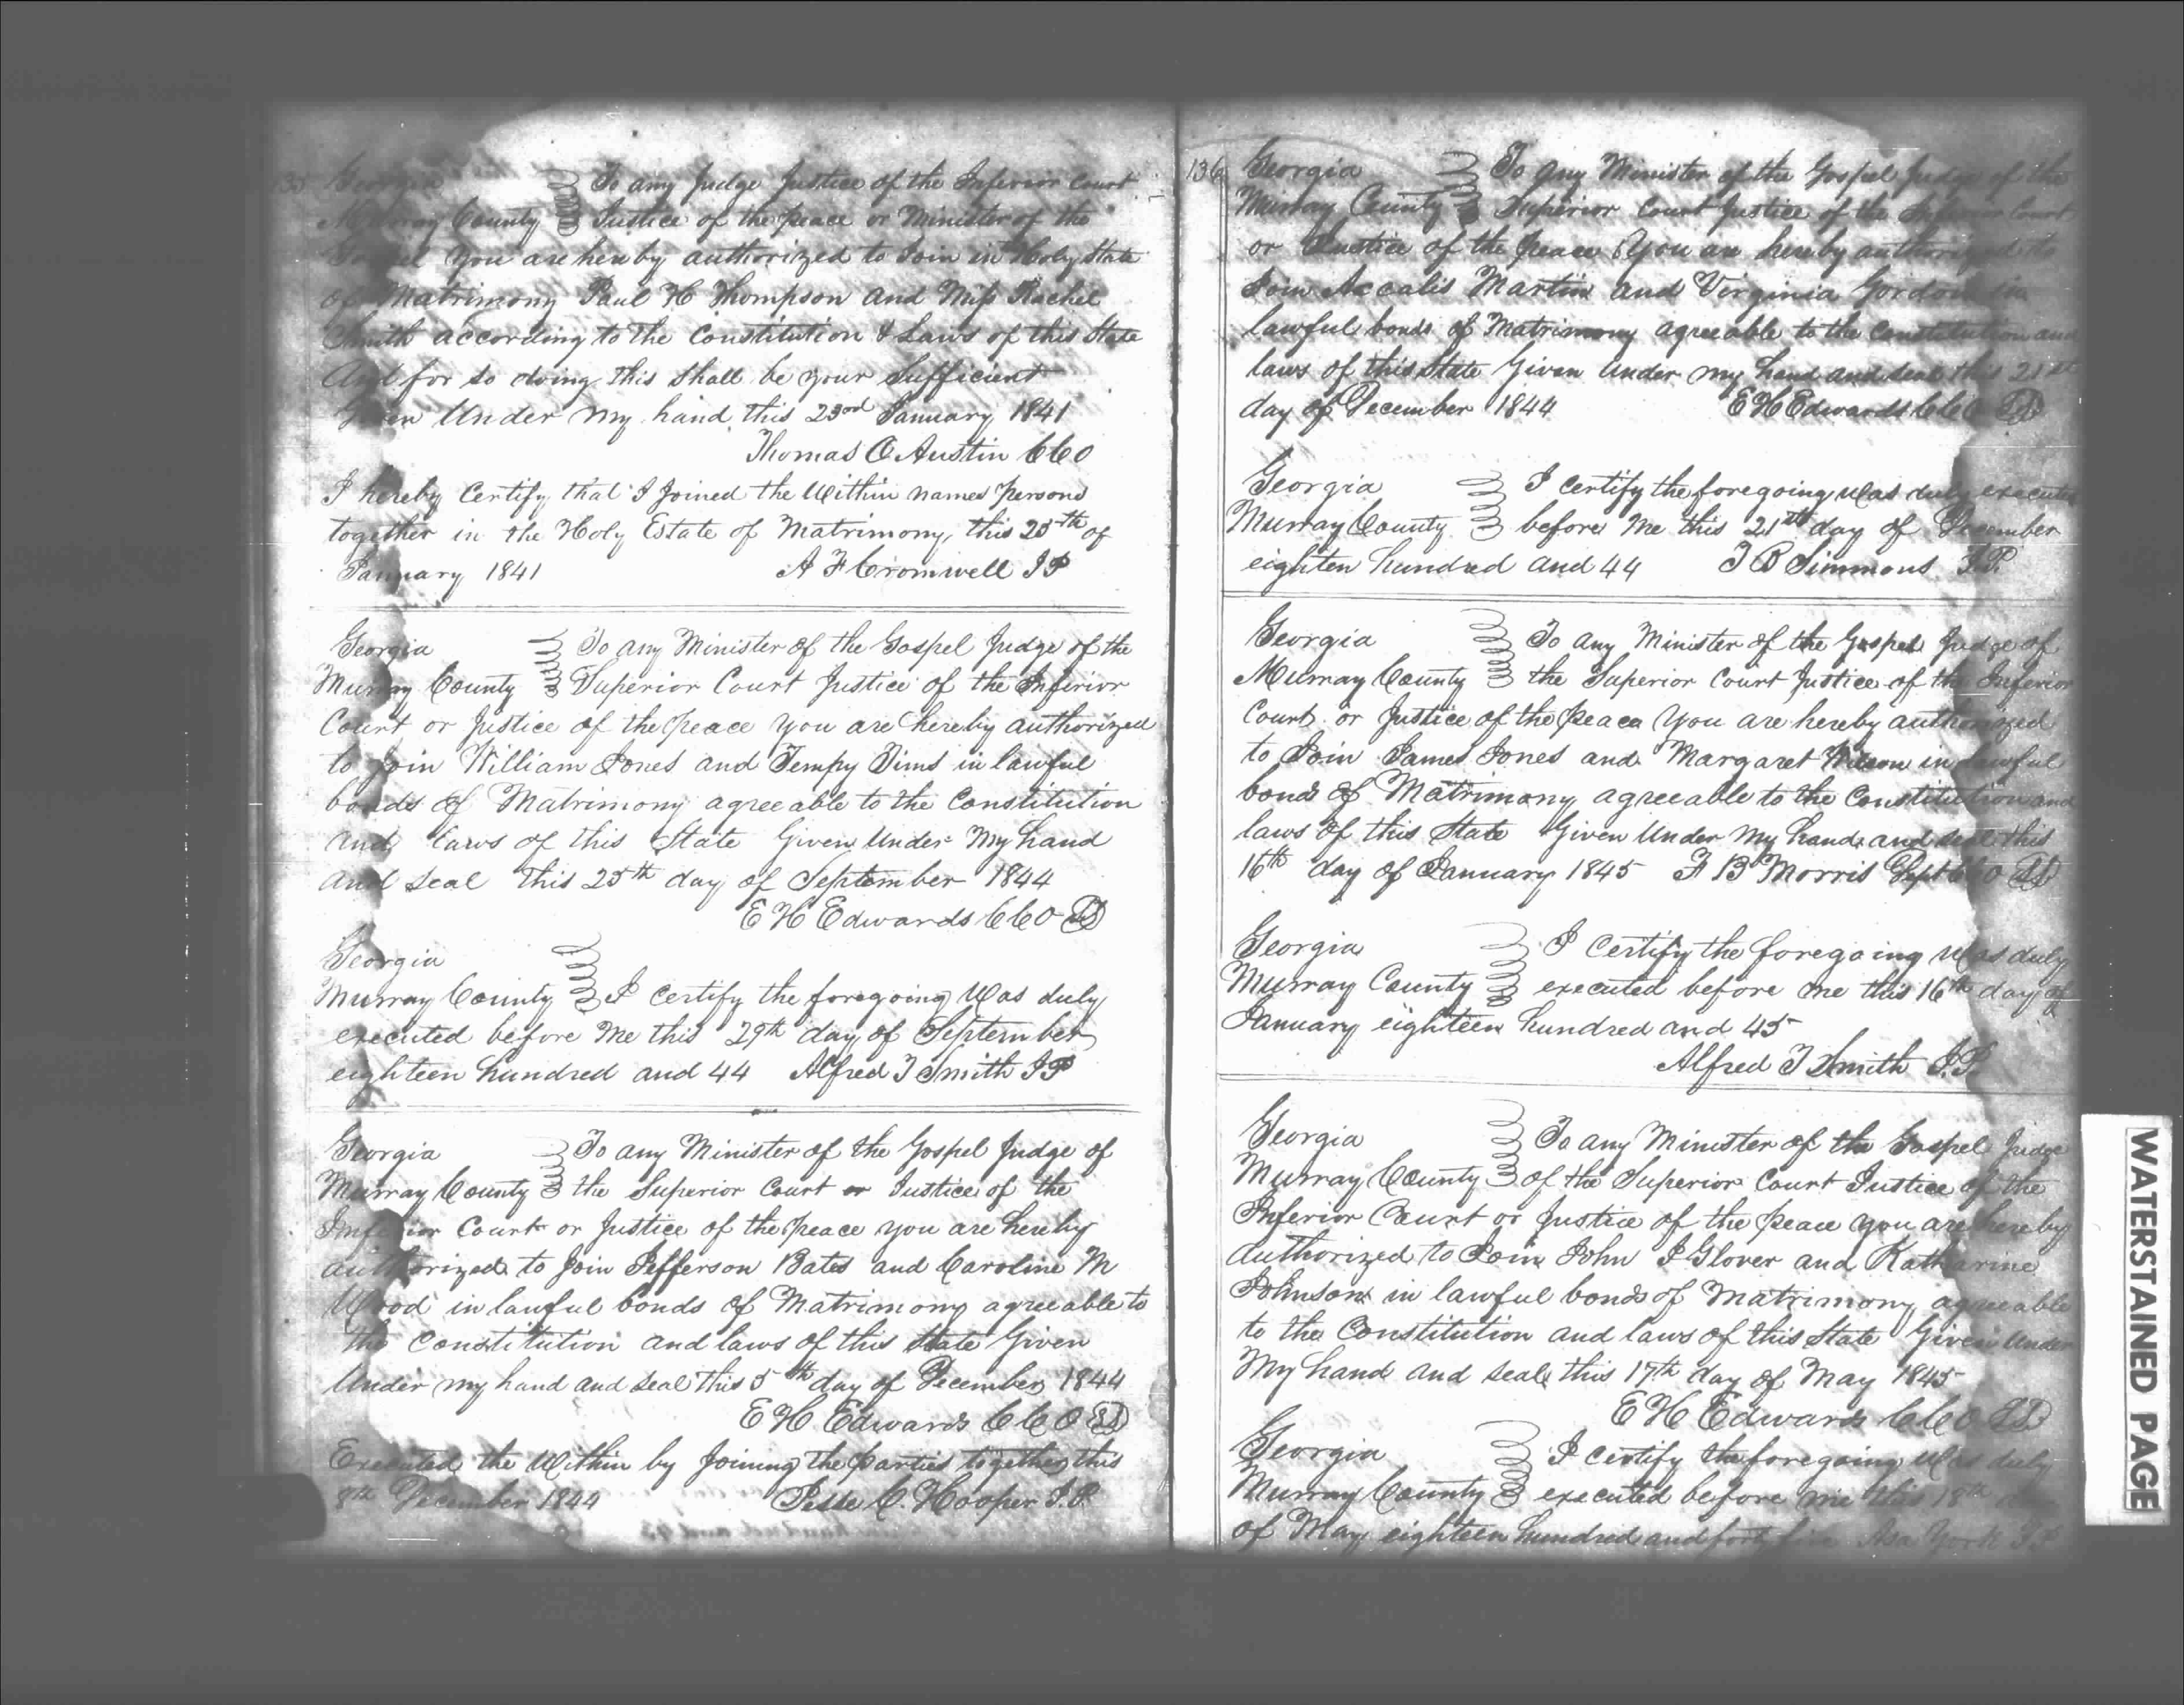 135 Georgia To any Judge Justice of the Inferior Court
Murray County Justice of the peace or Minister of the
Gospel You are hereby authorized to Join in Holy State
of Matrimony Paul H Thompson and Miss Rachel
Smith according to the Constitution & Laws of this State
And for so doing this Shall be your Sufficient
Given Under my hand this 23rd January 1841
Thomas C Austin CCO
I hereby Certify that I Joined the Within names persons
together in the Holy Estate of Matrimony, this 25th of
January 1841 A F Cromwell JP
Georgia To any Minister of the Gospel Judge of the
Murray County Superior Court Justice of the Inferior
Court or Justice of the peace you are hereby authorized
to Join William Jones and Tempy Sims in lawful
bonds of Matrimony agreeable to the Constitution
and laws of this State Given Under My hand
and seal this 25th day of September 1844
E H Edwards CCO LS
Georgia
Murray County I certify the foregoing Was duly
executed before Me this 29th day of September
eighteen hundred and 44 Alfred T Smith JP
Georgia To any Minister of the Gospel Judge of
Murray County the Superior Court or Justice of the
Inferior Court or Justice of the peace you are hereby
authorized to Join Jefferson Bates and Caroline M
Wood in lawful bonds of Matrimony agreeable to
the Constitution and laws of this State Given
Under my hand and seal this 5th day of December 1844
E H Edwards CCO LS
Executed the Within by Joining the parties together this
8th December 1844 C. Hooper J.P.
136 Georgia To any Minister of the Gospel Judge of the
Murray County Superior Court Justice of the Inferior Court
or Justice of the peace You are hereby authorized to
Join Martin and Virginia Gordon in
lawful bonds of Matrimony agreeable to the Constitution and
laws of this State Given Under my hand and seal this 21st
day of December 1844 E H Edwards CCO LS
Georgia I certify the foregoing Was duly executed
Murray County before Me this 21st day of December
eighten hundred and 44 T B Simmons J.P.
Georgia To any Minister of the Gospel Judge of
Murray County the Superior Court Justice of the Inferior
Court or Justice of the peace You are hereby authorized
to Join James Jones and Margaret Wilson in lawful
bonds of Matrimony agreeable to the Constitution and
laws of this State Given Under My hand and seal this
16th day of January 1845 F B Morris Dept CCO LS
Georgia I certify the foregoing Was duly
Murray County executed before me this 16th day of
January eighteen hundred and 45
Alfred T Smith J.P.
Georgia To any Minister of the Gospel Judge
Murray County of the Superior Court Justice of the
Inferior Court or Justice of the peace you are hereby
authorized to Join John J Glover and Katharine
Johnson in lawful bonds of Matrimony agreeable
to the Constitution and laws of this State Given Under
My hand and seal this 17th day of May 1845
E H Edwards CCO LS
Georgia I certify the foregoing Was duly
Murray County executed before me this 18th
of May eighteen hundred and forty five Asa York JP
WATERSTAINED PAGE